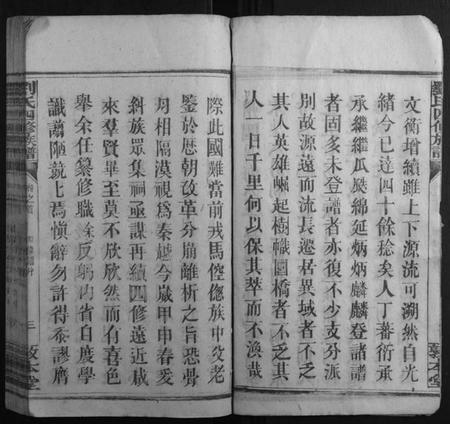 劉氏四修族譜
文衡增續雖上下源流可溯然自光
緒今已達四十餘稔矣人丁蕃衍承
承繼繼瓜瓞綿延炳炳麟麟登諸譜
者固多未登譜者亦復不少支分派
別故源遠而流長遷居異域者不乏
其人英雄崛起樹幟圜橋者不乏其
人一日千里何以保其萃而不渙哉
敦本堂
際此國難當前戎馬倥傯族中父老
鑒於歷朝改革分崩離析之旨恐骨
肉相隔漠視為秦越今歲甲申春爰
斜族眾集祠亟謀再續四修遠近咸
來羣賢畢至莫不欣欣然而有喜色
舉余任纂修職余反躬內省自度學
識譾陋兢上焉愼辭勿許得忝謬膺
劉氏四修族譜
卷之首
三
敦本堂